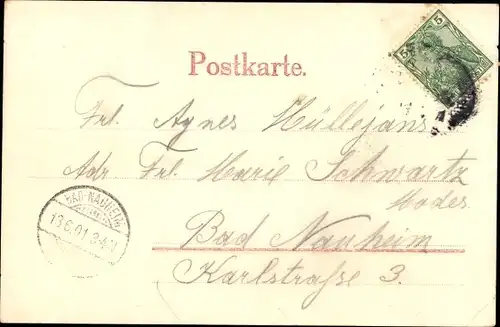 Postkarte.
5
5
Frl. Agnes Hüllejans
Adr. Frl. Marie Schwartz
Modes
Bad Nauheim
Karlstraße 3.
BAD-NAUHEIM
13.6.01.3-4N